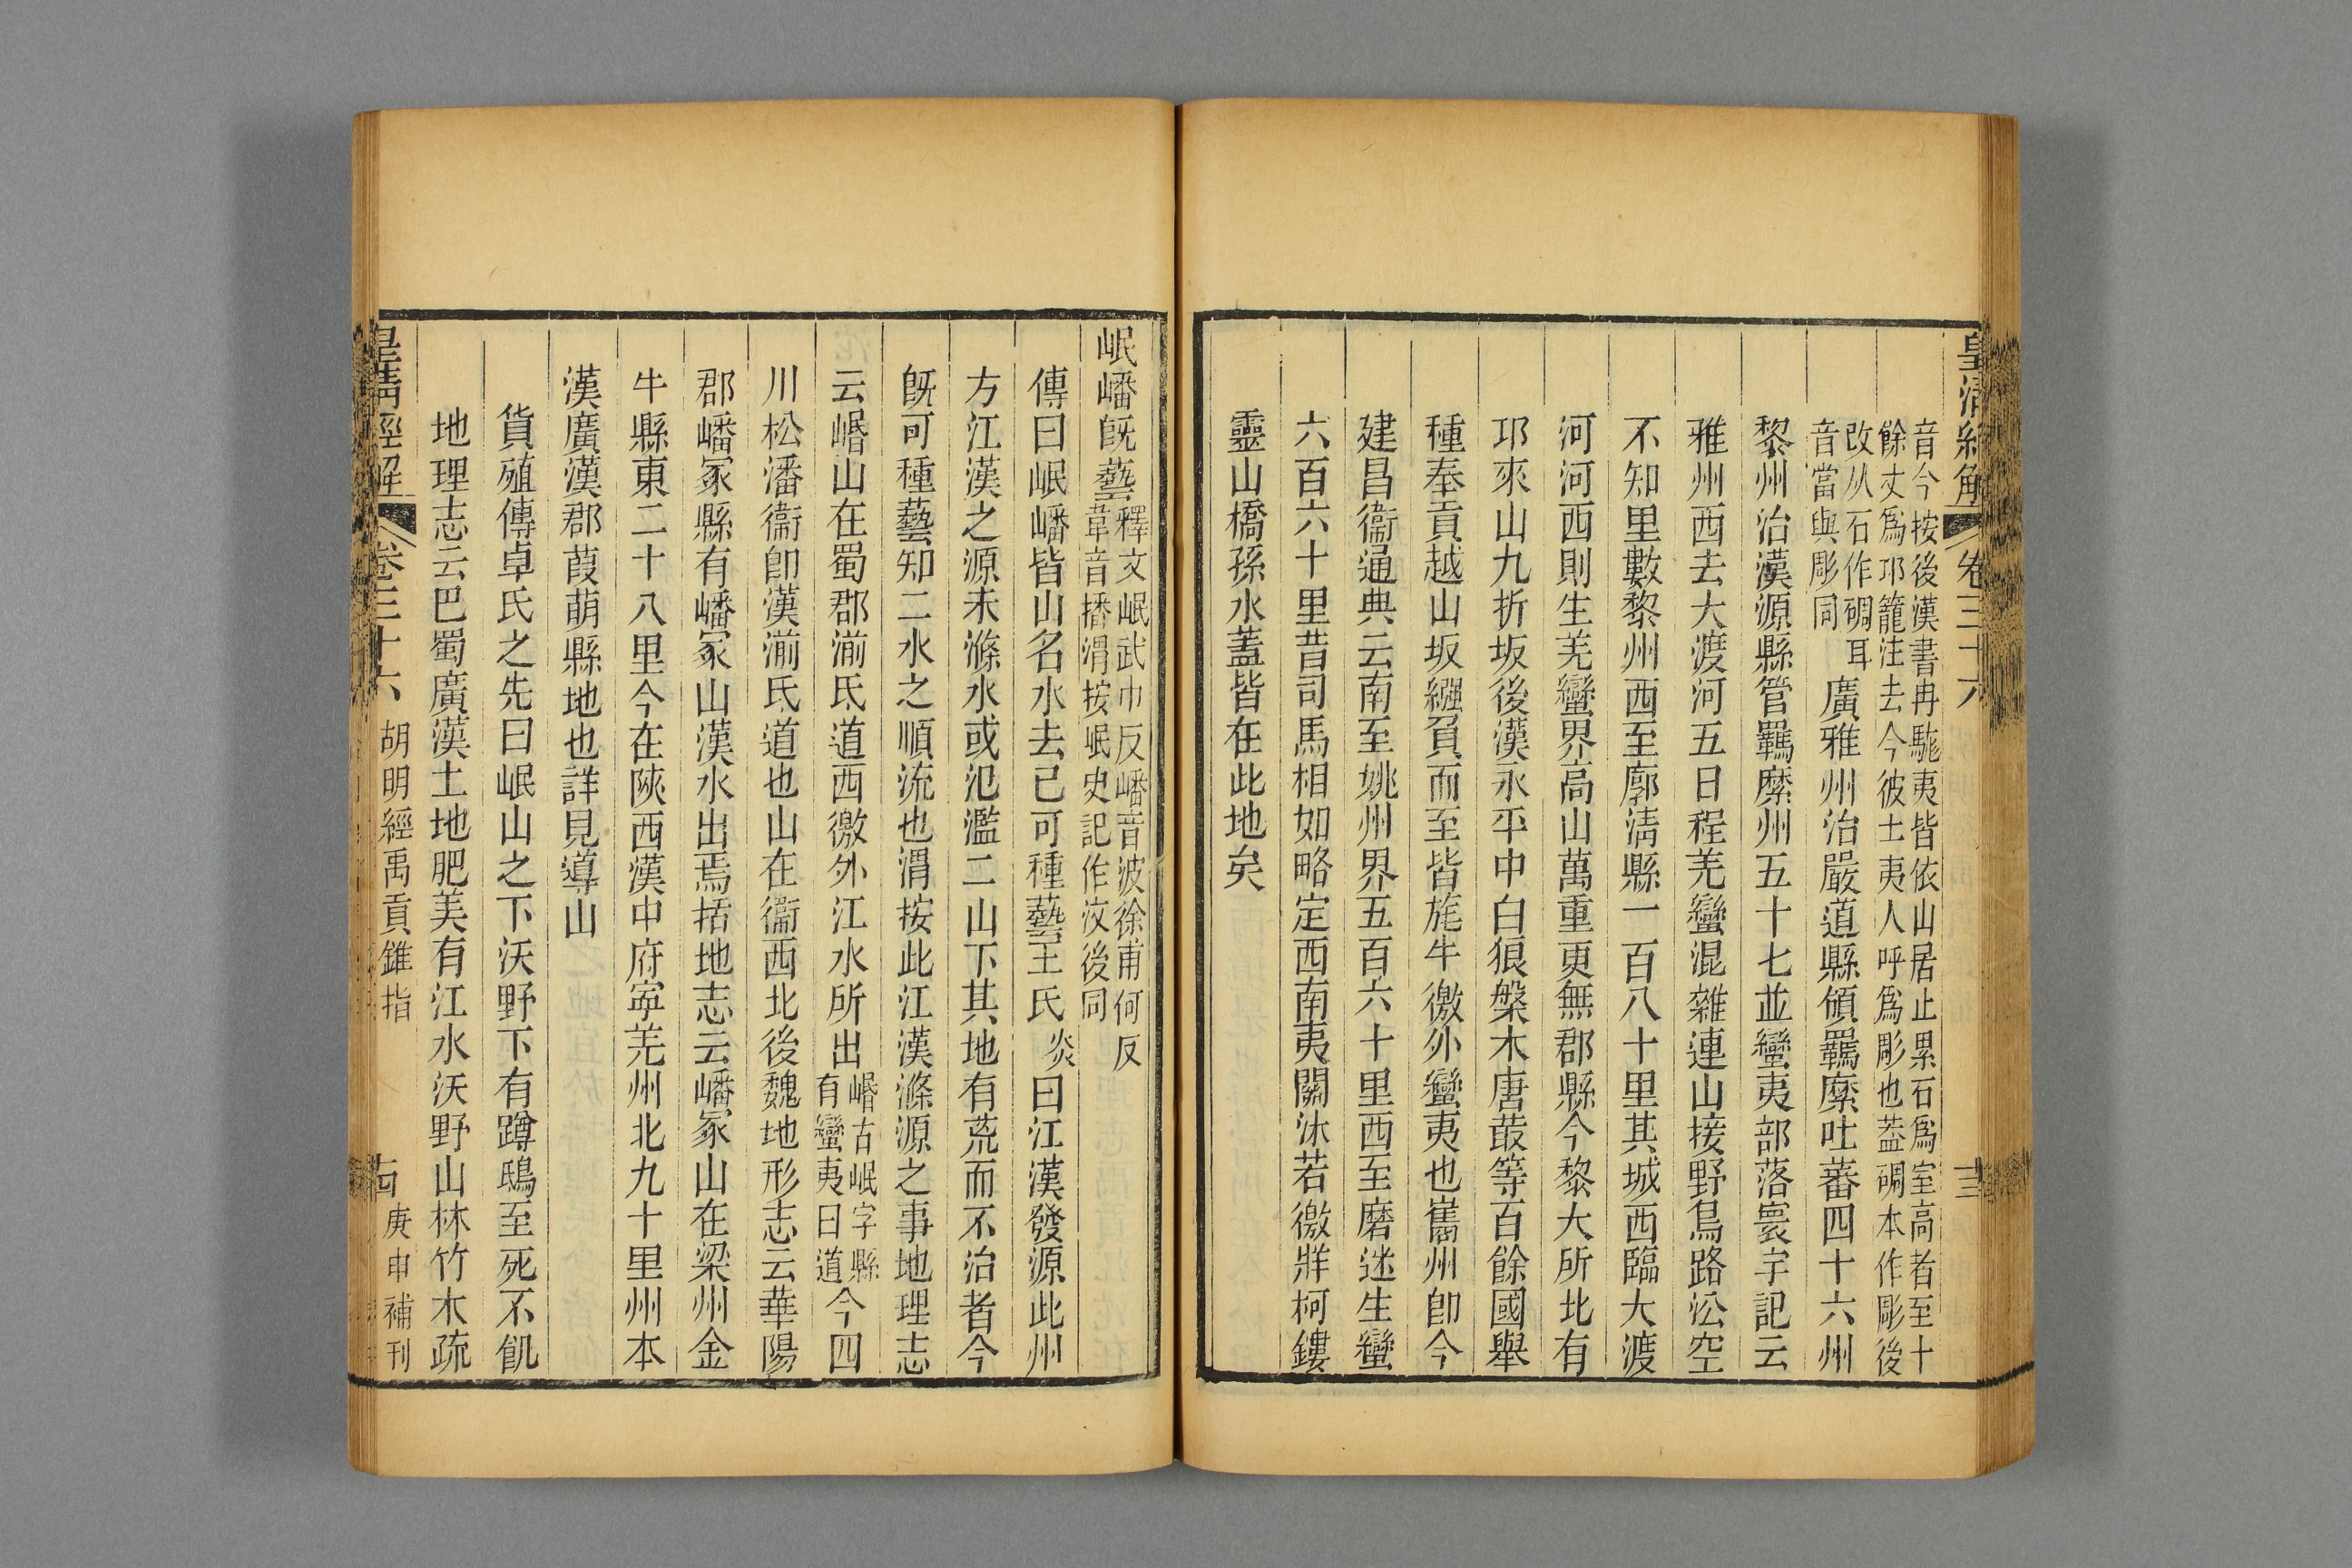 皇清經解 卷三十六 十三
音今按後漢書冉駹夷皆依山居止累石爲室高者至十
餘丈爲邛籠注去今彼土夷人呼爲彫也蓋碉本作彫後
改从石作碉耳
音當與彫同
廣雅州治嚴道縣領羈縻吐蕃四十六州
黎州治漢源縣管羈縻州五十七並蠻夷部落寰宇記云
雅州西去大渡河五日程羌蠻混雜連山接野鳥路沿空
不知里數黎州西至廓清縣一百八十里其城西臨大渡
河河西則生羌蠻界高山萬重更無郡縣今黎大所北有
邛來山九折坂後漢永平中白狼槃木唐菆等百餘國舉
種奉貢越山坂繦負而至皆旄牛徼外蠻夷也巂州卽今
建昌衞通典云南至姚州界五百六十里西至磨迷生蠻
六百六十里昔司馬相如略定西南夷關沬若徼牂柯鏤
靈山橋孫水蓋皆在此地矣
岷嶓旣藝
釋文岷武巾反嶓音波徐甫何反
韋音播渭按岷史記作汶後同
傳曰岷嶓皆山名水去已可種藝王氏炎曰江漢發源此州
方江漢之源未滌水或氾濫二山下其地有荒而不治者今
旣可種藝知二水之順流也渭按此江漢滌源之事地理志
云㟭山在蜀郡湔氐道西徼外江水所出
㟭古岷字縣
有蠻夷曰道
今四
川松潘衞卽漢湔氐道也山在衞西北後魏地形志云華陽
郡嶓冢縣有嶓冢山漢水出焉括地志云嶓冢山在梁州金
牛縣東二十八里今在陝西漢中府寜羌州北九十里州本
漢廣漢郡葭萌縣地也詳見導山
貨殖傳卓氏之先曰岷山之下沃野下有蹲鴟至死不飢
地理志云巴蜀廣漢土地肥美有江水沃野山林竹木疏
皇清經解 卷三十六 胡明經禹貢錐指 十四 庚申補刊